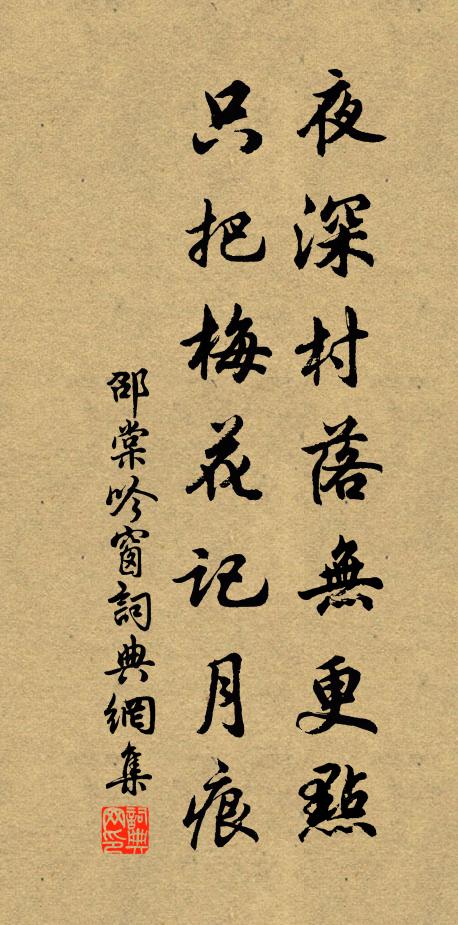 夜深村落無更點
只把梅花記月痕
邵棠吟窗詞典網集
詞典网印